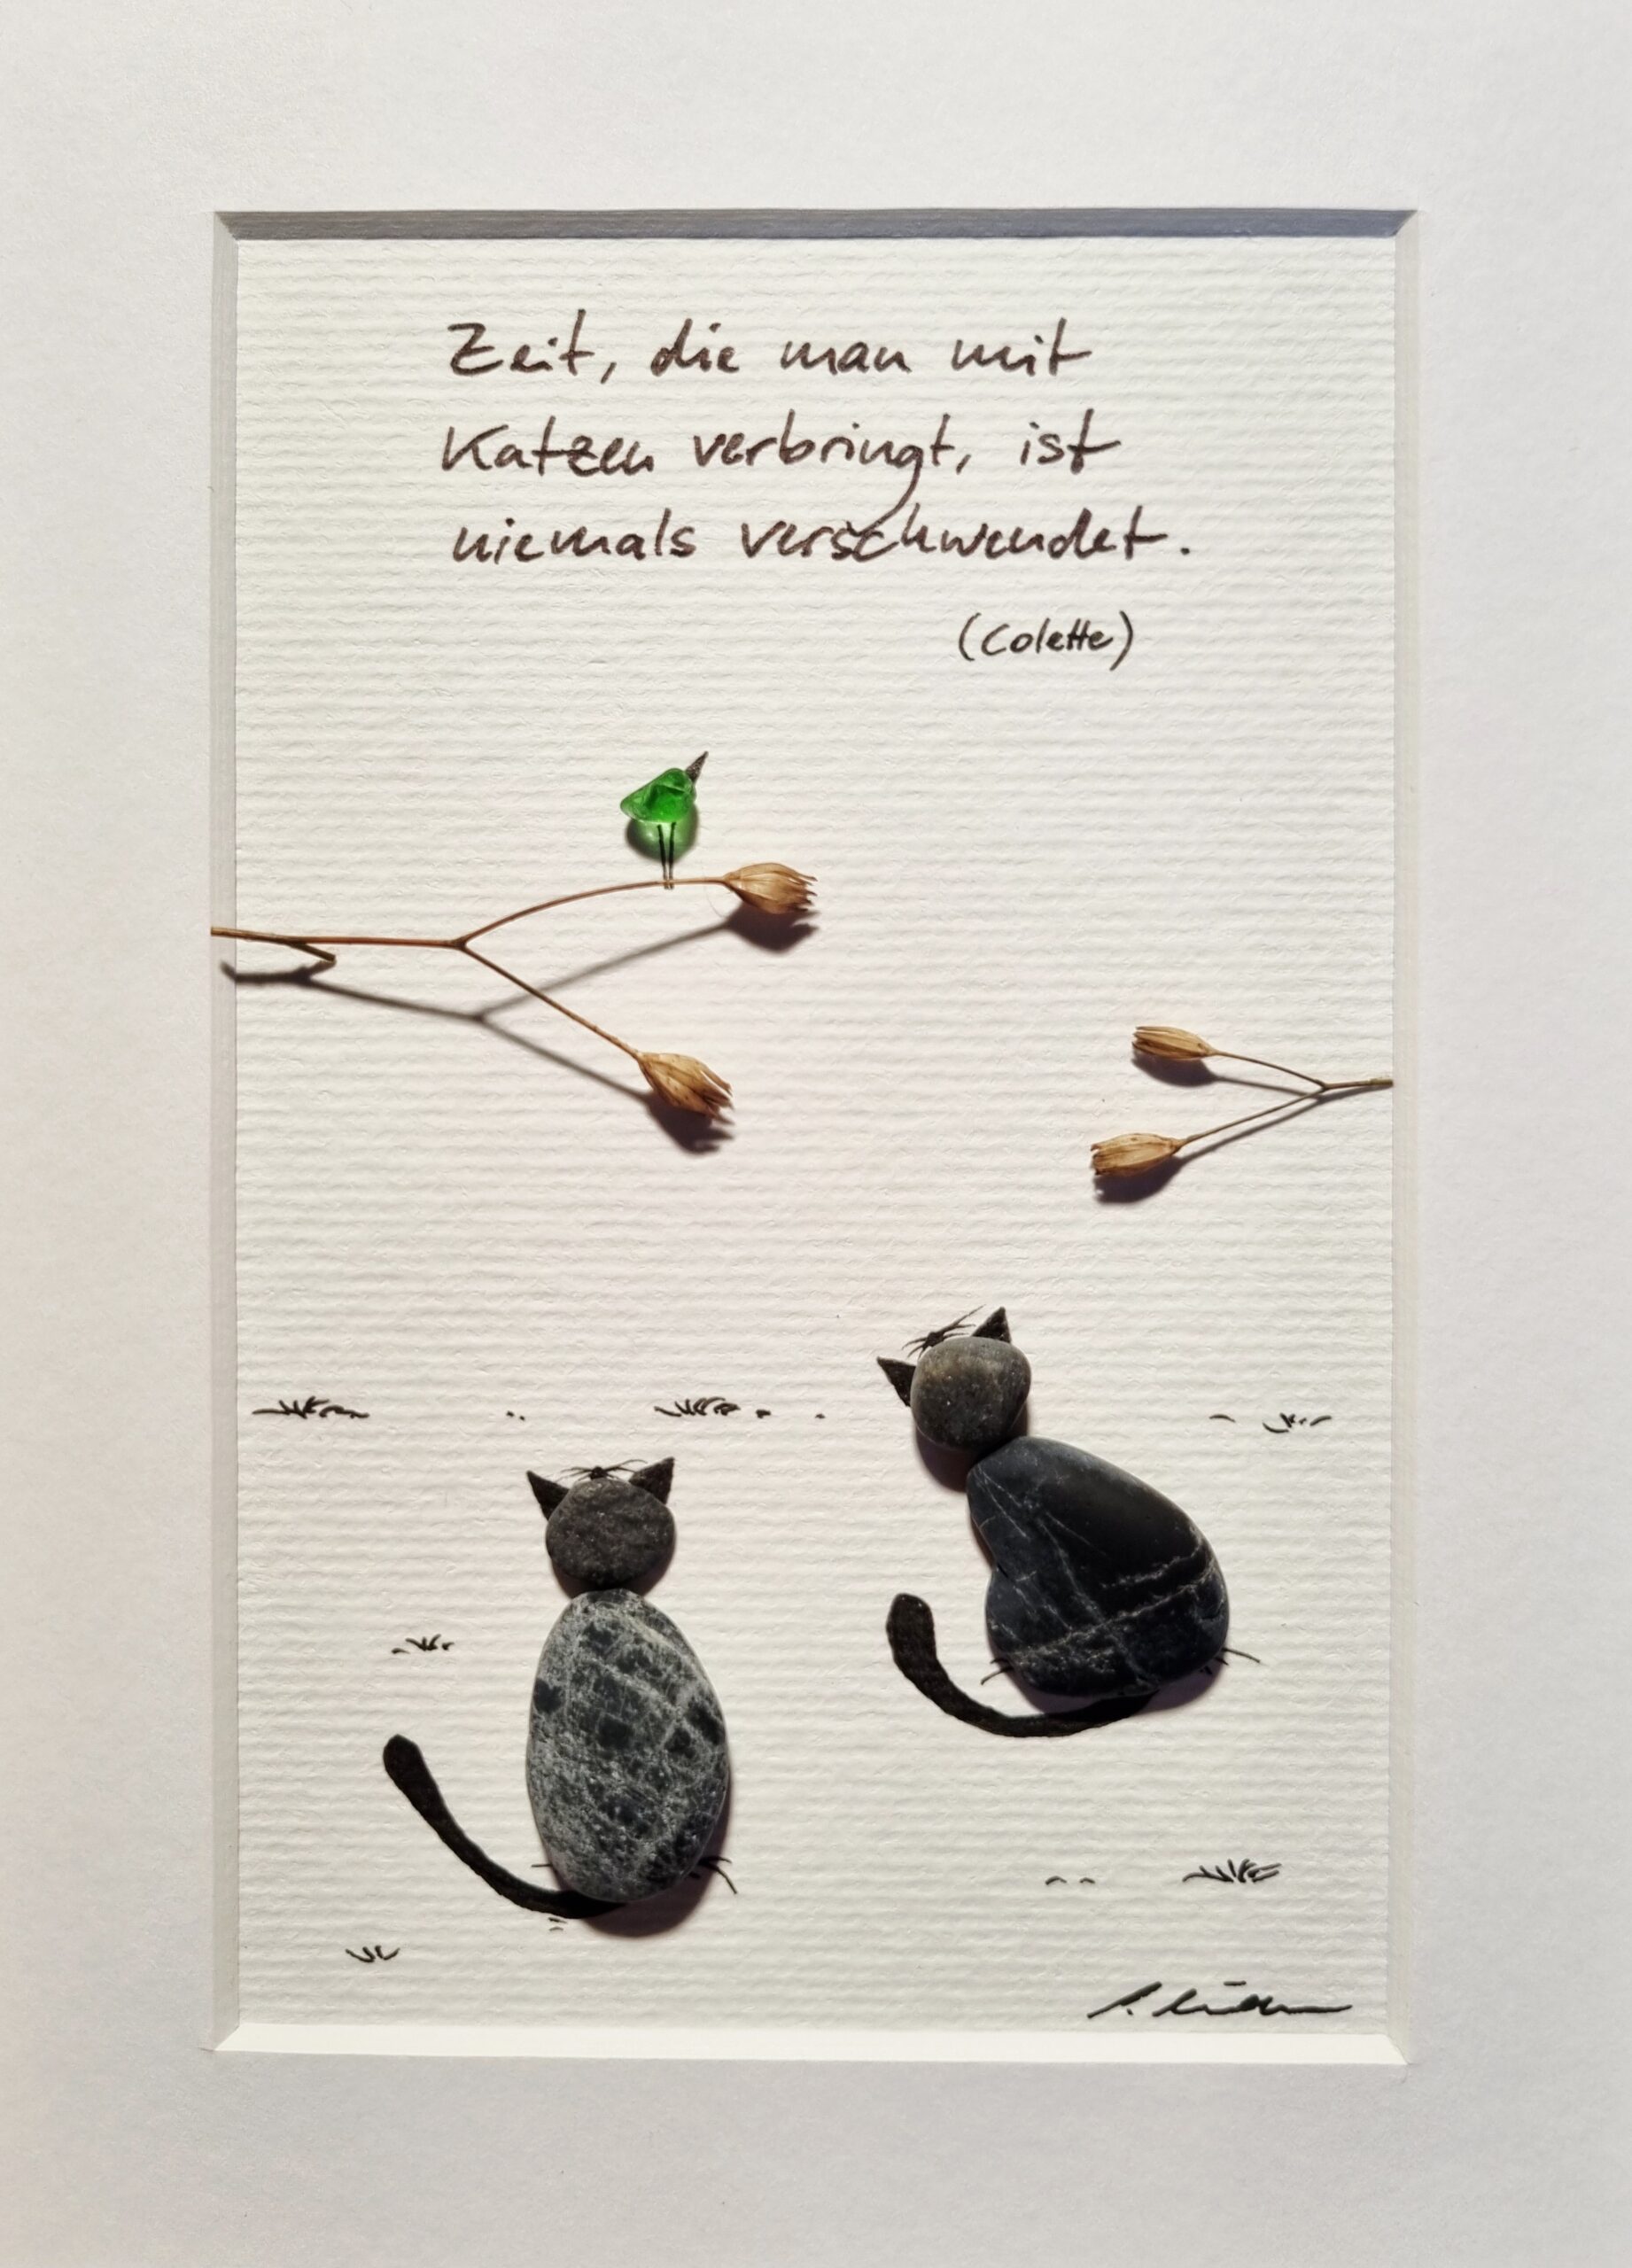 Zeit, die man mit
Katzen verbringt, ist
niemals verschwendet.
(Colette)